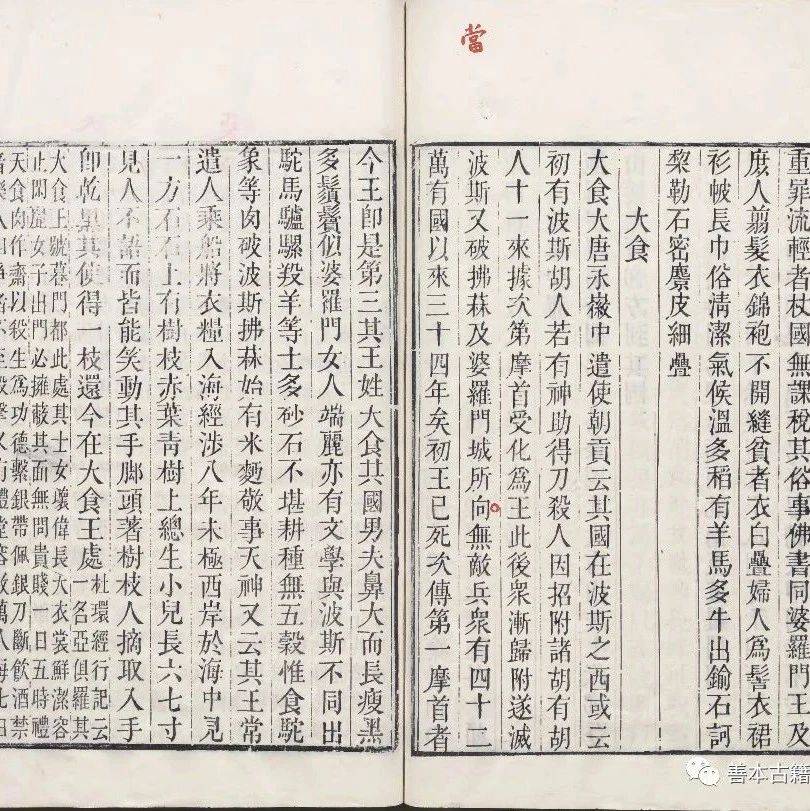 當
重罪流輕者杖國無課稅其俗事佛書同婆羅門王及
庶人翦髮衣錦袍不開縫貧者衣白疊婦人爲髻衣裙
衫帔長巾俗清潔氣候溫多稻有羊馬多牛出鍮石訶
黎勒石密麖皮細疊
大食
大食大唐永徽中遣使朝貢云其國在波斯之西或云
初有波斯胡人若有神助得刀殺人因招附諸胡有胡
人十一來據次第摩首受化爲王此後衆漸歸附遂滅
波斯又破拂菻及婆羅門城所向無敵兵衆有四十二
萬有國以來三十四年矣初王已死次傳第一摩首者
今王卽是第三其王姓大食其國男夫鼻大而長瘦黑
多鬚鬢似婆羅門女人端麗亦有文學與波斯不同出
駝馬驢騾羖羊等士多砂石不堪耕種無五穀惟食駝
象等肉破波斯拂菻始有米麵敬事天神又云其王常
遣人乘船將衣糧入海經涉八年未極西岸於海中見
一方石石上有樹枝赤葉靑樹上總生小兒長六七寸
見人不語而皆能笑動其手脚頭著樹枝人摘取入手
卽乾黑其使得一枝還今在大食王處
杜環經行記云
一名亞俱羅其
大食王號暮門都此處其士女瓌偉長大衣裳鮮潔容
止閑麗女子出門必擁蔽其面無問貴賤一日五時禮
天食肉作齋以殺生爲功德繫銀帶佩銀刀斷飲酒禁
音樂人相爭者不至毆擊又有禮堂容數萬人每七日
善本古籍